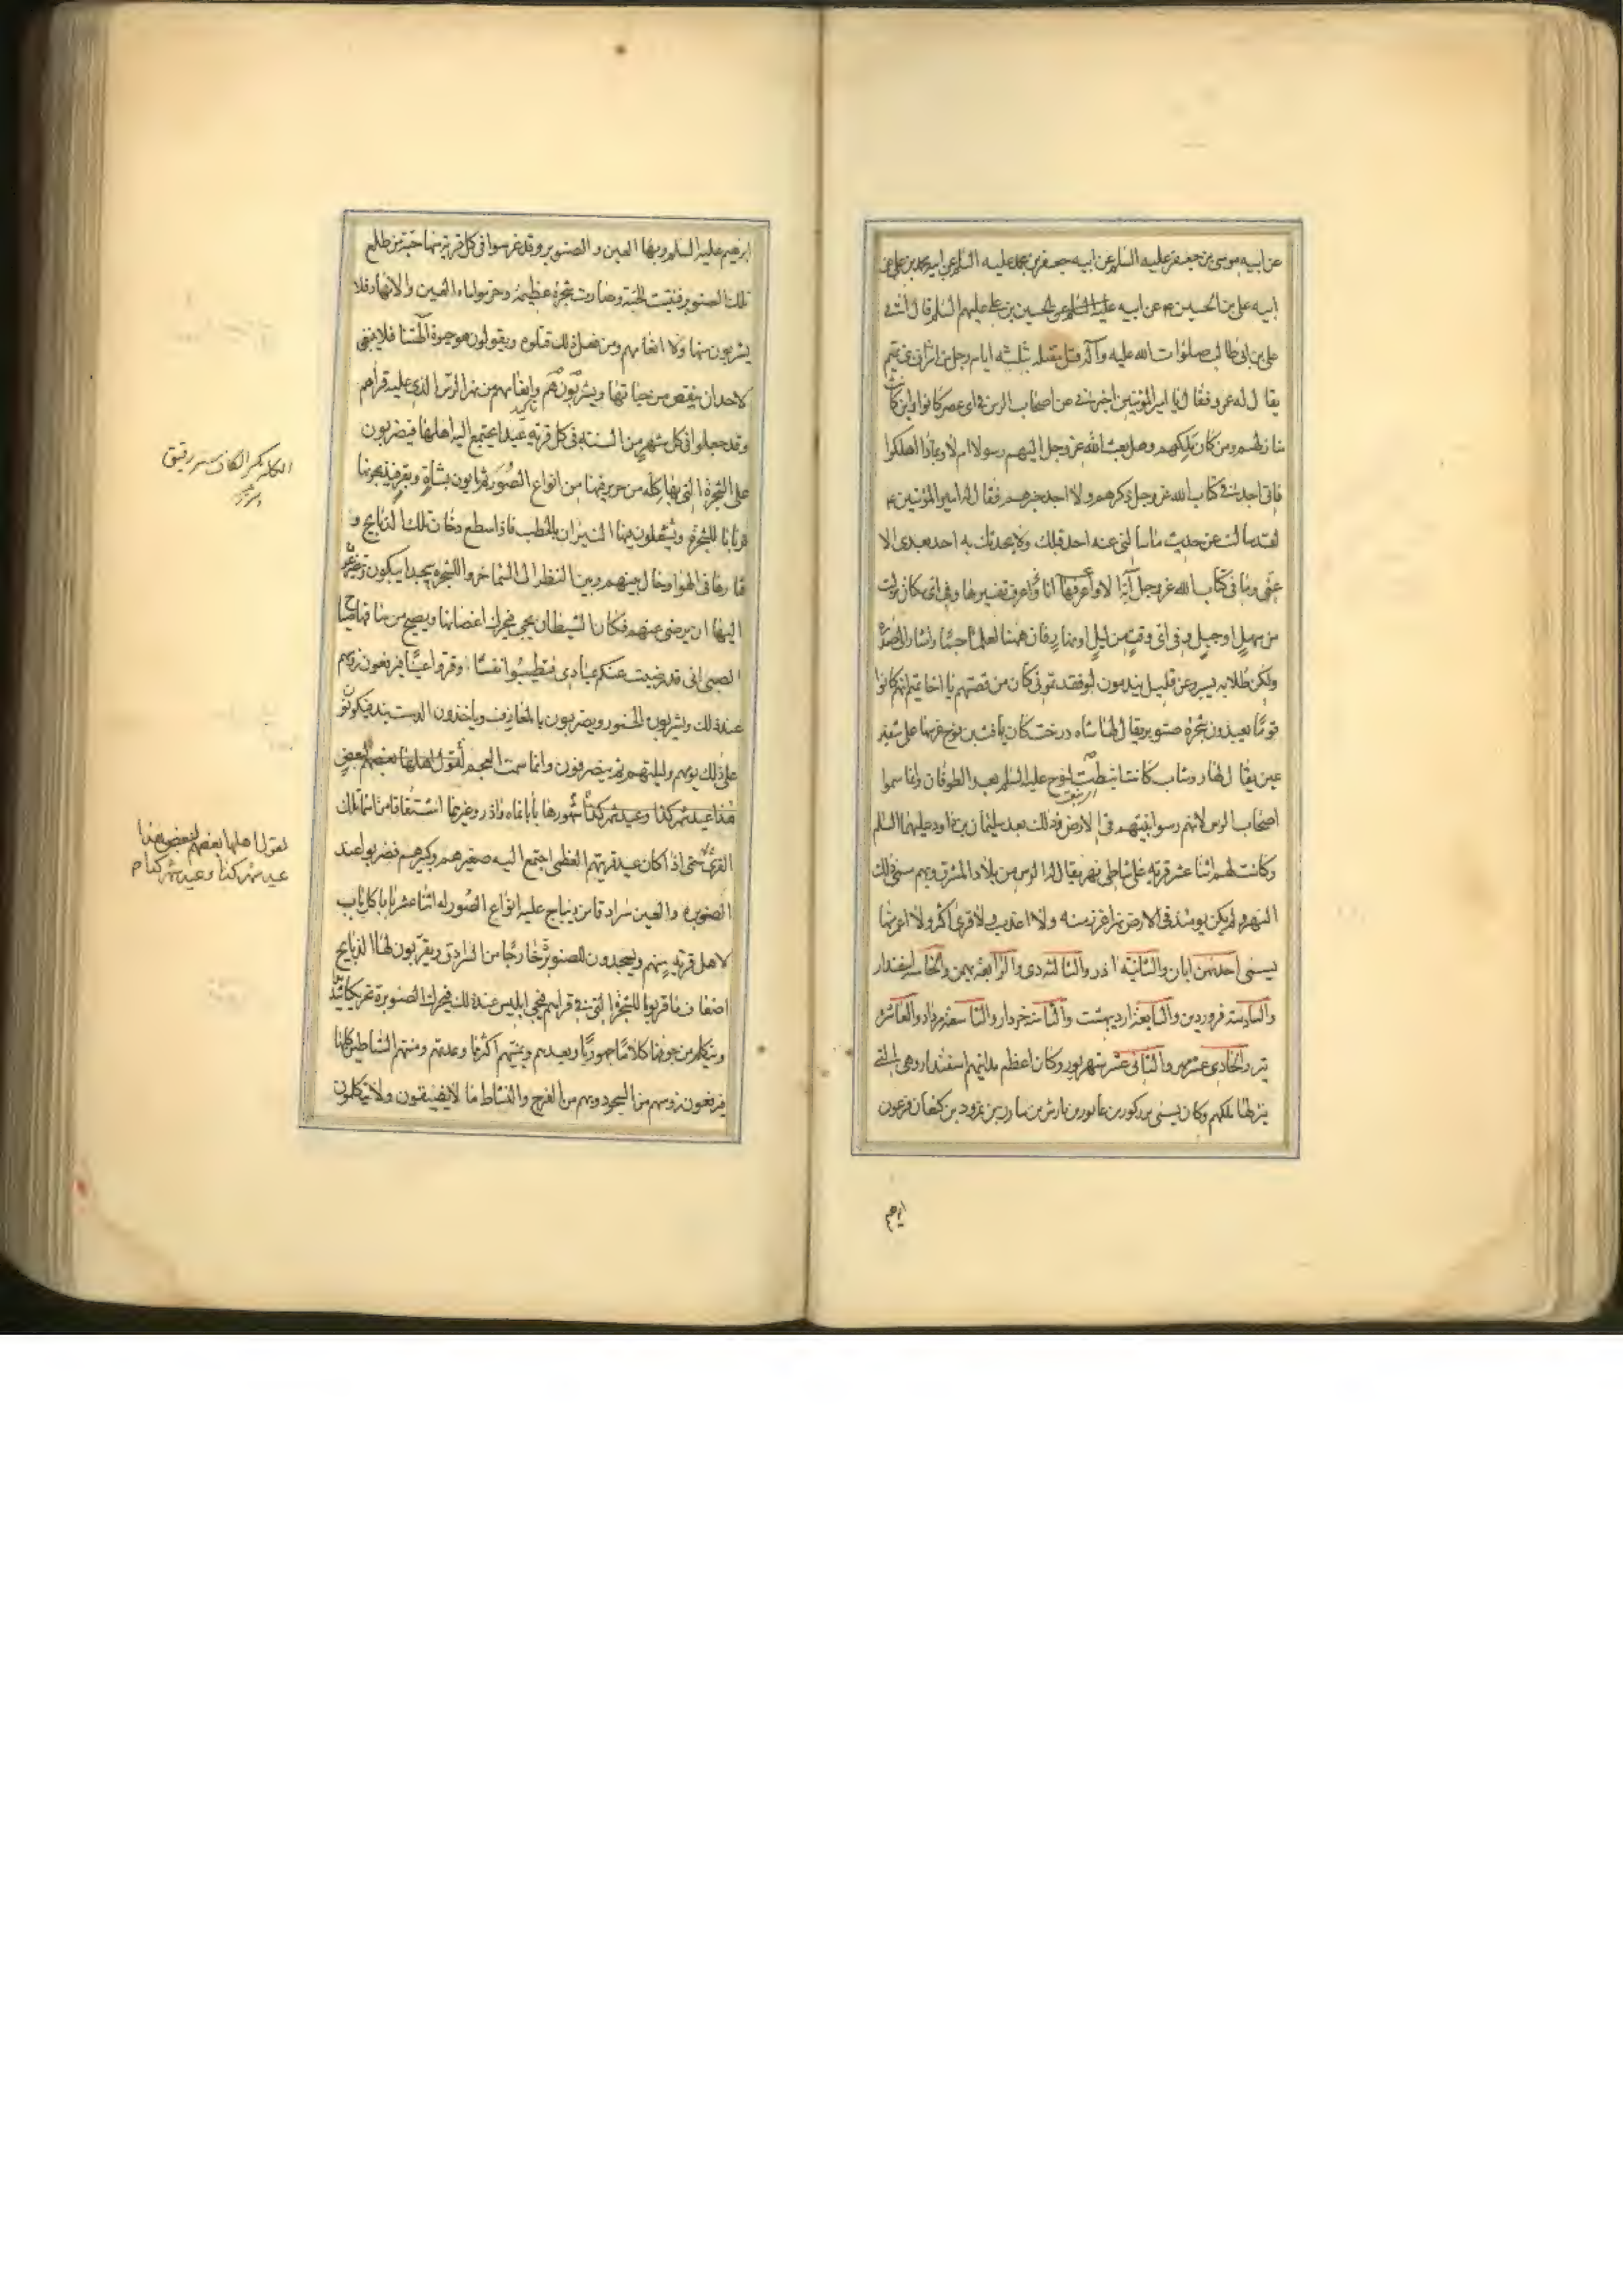 عن ابيه موسى بن جعفر عليه السلم عن ابيه جعفر بن محمد عليه السلم عن ابيه محمد بن علي عن
ابيه علي بن الحسين ع عن ابيه الحسين بن علي عليهم السلم قال اتى
علي بن ابي طالب صلوات الله عليه وآله قبل مقتله بثلثة ايام رجل من اشراف بني تميم
يقال له عمرو فقال يا امير المؤمنين اخبرني عن اصحاب الرس في اي عصر كانوا واين كانت
منازلهم ومن كان ملكهم وهل بعث الله عز وجل اليهم رسولا ام لا وبماذا اهلكوا
فاني اجد في كتاب الله عز وجل ذكرهم ولا اجد خبرهم فقال له امير المؤمنين ع
لقد سالت عن حديث ما سالني عنه احد قبلك ولا يحدثك به احد بعدي الا
عني وما في كتاب الله عز وجل آية الا وانا اعرفها واعرف تفسيرها وفي اي مكان نزلت
من سهل او جبل وفي اي وقت من ليل او نهار وان ههنا لعلما جما واشار الى صدره
ولكن طلابه يسير وعن قليل يندمون لو فقدتموني كان من قصتهم يا اخا تميم انهم كانوا
قوما يعبدون شجرة صنوبر يقال لها شاه درخت كان يافث بن نوح غرسها على شفير
عين يقال لها روشاب كانت انبطت لنوح عليه السلم بعد الطوفان وانما سموا
اصحاب الرس لانهم رسوا نبيهم في الارض وذلك بعد سليمان بن داود عليهما السلم
وكانت لهم اثنا عشر قرية على شاطئ نهر يقال له الرس من بلاد المشرق وبهم سمي ذلك
النهر ولم يكن يومئذ في الارض نهر اغزر منه ولا اعذب ولا قرى اكثر ولا اعمر منها
يسمى احديهن ابان والثانية اذر والثالثة دي والرابعة بهمن والخامسة اسفندار
والسادسة فروردين والسابعة ارديبهشت والثامنة خرداد والتاسعة مرداد والعاشرة
تير والحادي عشر مهر والثاني عشر شهريور وكان اعظم مدائنهم اسفندار وهي التي
ينزلها ملكهم وكان يسمى تركوز بن عابور بن يارش بن سارب بن نمرود بن كنعان فرعون
ابرهيم
ابرهيم عليه السلم وبها العين والصنوبر وقد غرسوا في كل قرية منها حبة من طلع
تلك الصنوبر فنبتت الحبة وصارت شجرة عظيمة وحرموا ماء العين والانهار فلا
يشربون منها ولا انعامهم ومن فعل ذلك قتلوه ويقولون هو حيوة آلهتنا فلا ينبغي
لاحد ان ينقص من حياتها ويشربون هم وانعامهم من نهر الرس الذي عليه قراهم
وقد جعلوا في كل شهر من السنة في كل قرية عيدا يجتمع اليه اهلها فيضربون
على الشجرة التي بها كلة من حرير فيها من انواع الصور ثم ياتون بشاة وبقر فيذبحونها
قربانا للشجرة ويشعلون فيها النيران بالحطب فاذا سطع دخان تلك الذبايح و
قتارها في الهواء وحال بينهم وبين النظر الى السماء خروا للشجرة سجدا يبكون ويتضرعون
اليها ان يرضى عنهم فكان الشيطان يجي فيحرك اغصانها ويصيح من ساقها صياح
الصبي اني قد رضيت عنكم عبادي فطيبوا نفسا وقروا عينا فيرفعون رؤسهم
عند ذلك ويشربون الخمور ويضربون بالمعازف وياخذون الدست بند فيكونون
على ذلك يومهم وليلتهم ثم ينصرفون وانما سمت العجم لقول اهلها بعضهم لبعض
هذا عيد شهر كذا وعيد شهر كذا شهورها بابانماه واذر وغيرهما اشتقاقا من اسماء تلك
القرى حتى اذا كان عيد قريتهم العظمى اجتمع اليه صغيرهم وكبيرهم فضربوا عند
الصنوبرة والعين سرادقا من ديباج عليه انواع الصور له اثنا عشر بابا كل باب
لاهل قرية منهم ويسجدون للصنوبرة خارجا من السرادق ويقربون لها الذبايح
اضعاف ما قربوا للشجرة التي في قراهم فيجي ابليس عند ذلك فيحرك الصنوبرة تحريكا شديدا
ويتكلم من جوفها كلاما جهوريا ويعدهم ويمنيهم اكثر ما وعدتهم ومنتهم الشياطين كلها
فيرفعون رؤسهم من السجود وبهم من الفرح والنشاط ما لا يفيقون ولا يتكلمون
الكلة بكسر الكاف ستر رقيق
لقول اهلها بعضهم لبعض هذا
عيد شهر كذا وعيد شهر كذا م